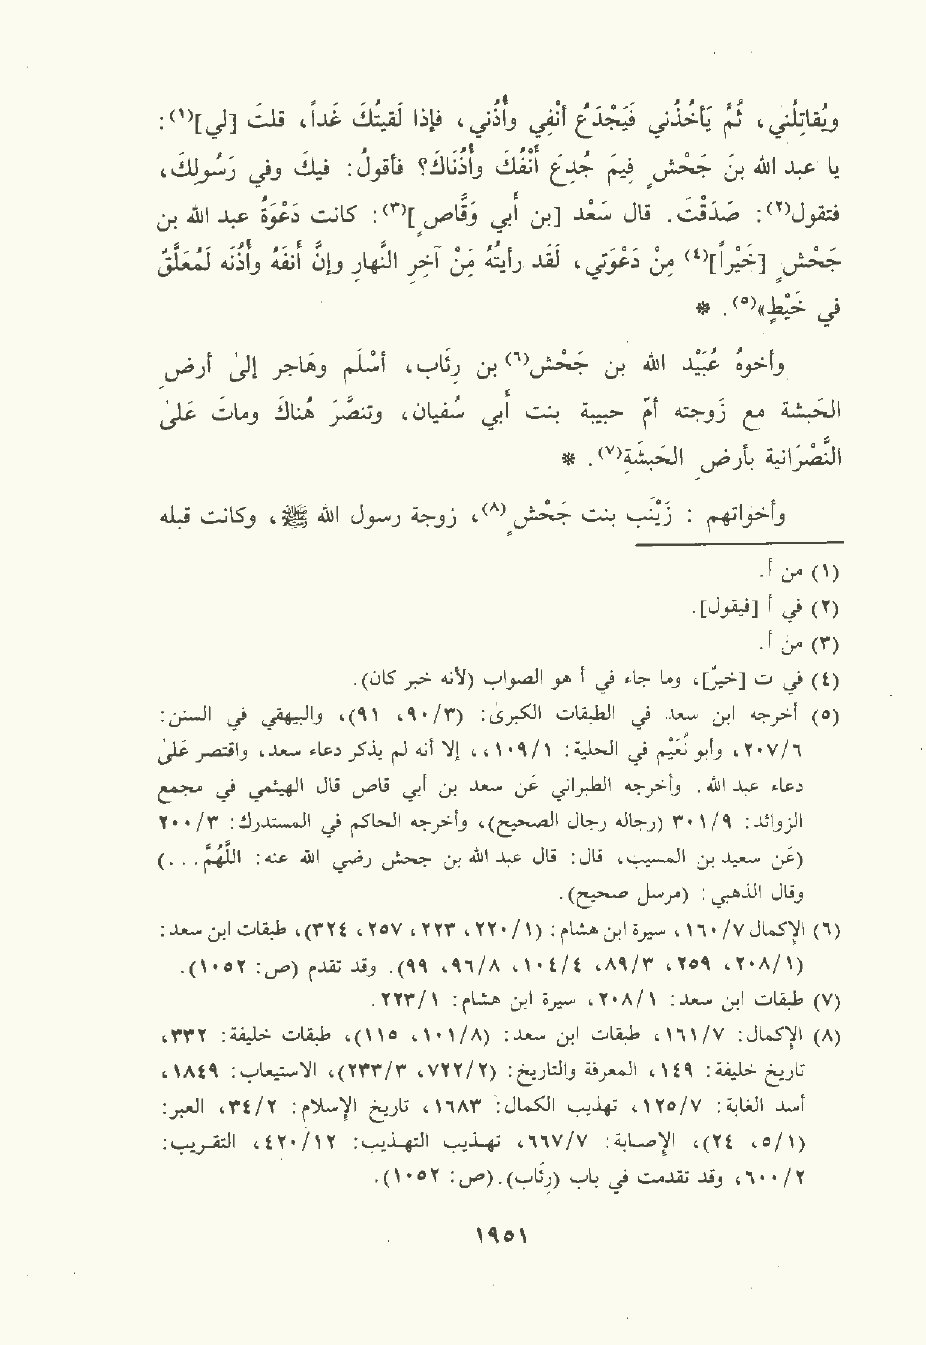 ويُقاتِلُني، ثُمَّ يَأْخُذُني فَيَجْدَعُ أَنْفي وأُذُني، فإذا لَقيتُكَ غَداً، قلتَ [لي](١):
يا عبد الله بنَ جَحْشٍ فيمَ جُدِعَ أَنْفُكَ وأُذُنَاكَ؟ فأقولُ: فيكَ وفي رَسُولِكَ،
فتقول(٢): صَدَقْتَ. قال سَعْد [بن أبي وَقّاصٍ](٣): كانت دَعْوَةُ عبد الله بن
جَحْشٍ [خَيْراً](٤) مِنْ دَعْوَتي، لَقَد رأيتُهُ مِنْ آخِرِ النَّهارِ وإنَّ أَنفَهُ وأُذُنَه لَمُعَلَّقٌ
في خَيْطٍ»(٥). *
وأخوهُ عُبَيْد الله بن جَحْش(٦) بن رِئَاب، أَسْلَم وهَاجَر إلى أرضِ
الحَبشة مع زَوجته أمّ حبيبة بنت أبي سُفيان، وتنصَّرَ هُناكَ وماتَ عَلىٰ
النَّصْرَانية بأرضِ الحَبشَةِ(٧). *
وأخواتهم : زَيْنَب بنت جَحْشٍ(٨)، زوجة رسول الله ﷺ، وكانت قبله
(١) من أ.
(٢) في أ [فيقول].
(٣) من أ.
(٤) في ت [خيرٌ]، وما جاء في أ هو الصواب (لأنه خبر كان).
(٥) أخرجه ابن سعد في الطبقات الكبرى: (٩٠/٣، ٩١)، والبيهقي في السنن:
٢٠٧/٦، وأبو نُعَيم في الحلية: ١٠٩/١، ، إلا أنه لم يذكر دعاء سعد، واقتصر عَلىٰ
دعاء عبد الله. وأخرجه الطبراني عَن سعد بن أبي وقاص قال الهيثمي في مجمع
الزوائد: ٣٠١/٩ (رجاله رجال الصحيح)، وأخرجه الحاكم في المستدرك: ٢٠٠/٣
(عَن سعيد بن المسيب، قال: قال عبد الله بن جحش رضي الله عنه: اللَّهُمَّ. . .)
وقال الذهبي: (مرسل صحيح).
(٦) الإكمال ١٦٠/٧، سيرة ابن هشام: (٢٢٠/١، ٢٢٣، ٢٥٧، ٣٢٤)، طبقات ابن سعد:
(٢٠٨/١، ٢٥٩، ٨٩/٣، ١٠٤/٤، ٩٦/٨، ٩٩). وقد تقدم (ص: ١٠٥٢).
(٧) طبقات ابن سعد: ٢٠٨/١، سيرة ابن هشام: ٢٢٣/١.
(٨) الإكمال: ١٦١/٧، طبقات ابن سعد: (١٠١/٨، ١١٥)، طبقات خليفة: ٣٣٢،
تاريخ خليفة: ١٤٩، المعرفة والتاريخ: (٧٢٢/٢، ٢٣٣/٣)، الاستيعاب: ١٨٤٩،
أسد الغابة: ١٢٥/٧، تهذيب الكمال: ١٦٨٣، تاريخ الإسلام: ٣٤/٢، العبر:
(٥/١، ٢٤)، الإصابة: ٦٦٧/٧، تهذيب التهذيب: ٤٢٠/١٢، التقريب:
٦٠٠/٢، وقد تقدمت في باب (رِئَاب).(ص: ١٠٥٢).
١٩٥١